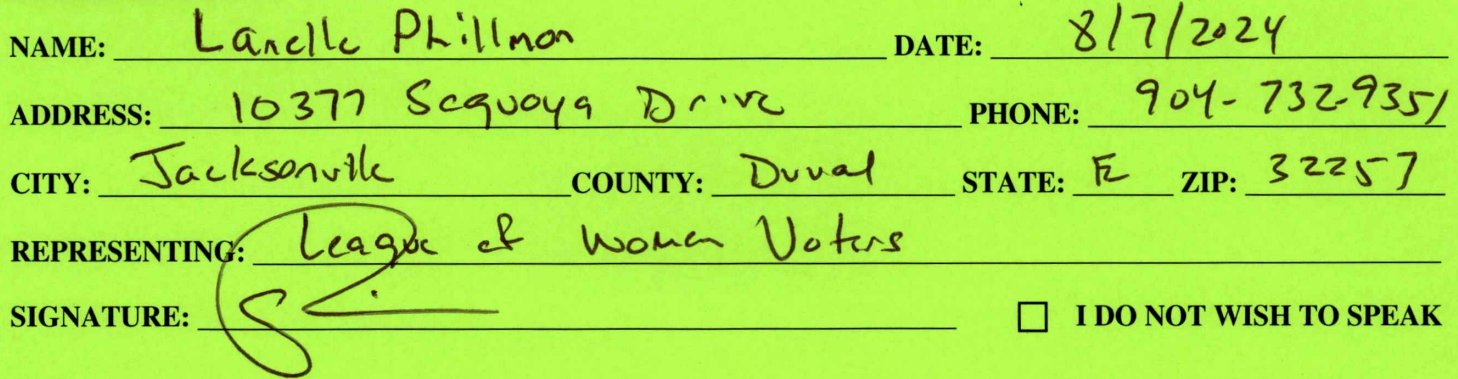 NAME: Lanelle Phillmon DATE: 8/7/2024
ADDRESS: 10377 Sequoya Drive PHONE: 904-732-9351
CITY: Jacksonville COUNTY: Duval STATE: FL ZIP: 32257
REPRESENTING: League of Women Voters
SIGNATURE: I DO NOT WISH TO SPEAK